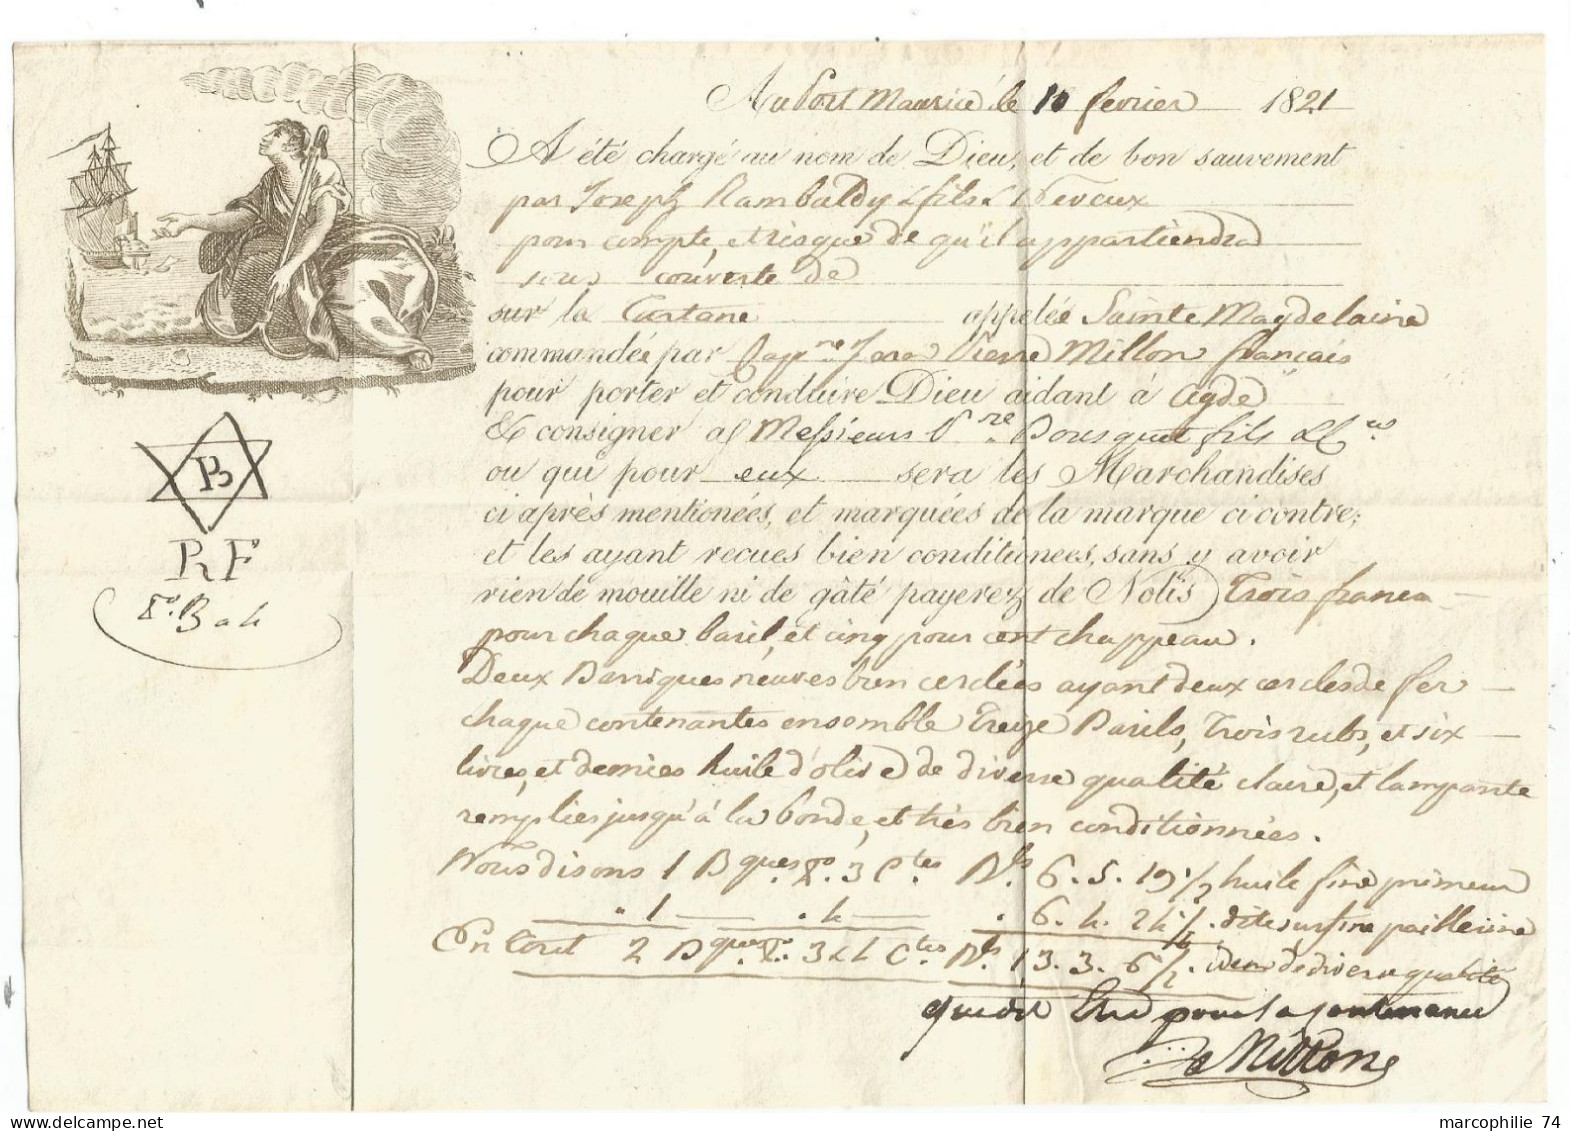 Au Port Maurice le 10 fevrier 1821
A été chargé au nom de Dieu, et de bon sauvement
par Joseph Rambaldy & fils & Neveux
pour compte, et risque de qu'il appartiendra
sous couverte de
sur la Tartane appelée Sainte Magdelaine
commandée par Cap.ne Jean Pierre Millon français
pour porter et conduire Dieu aidant à Agde
& consigner a Messieurs P.re Bousquet fils & C.
ou qui pour eux sera les Marchandises
ci après mentionées, et marquées de la marque ci contre;
et les ayant recues bien conditionees, sans y avoir
rien de mouille ni de gâté payerez de Nolis Trois francs
pour chaque baril, et cinq pour cent chappeau.
Deux Barriques neuves bien cerclées ayant deux cercles de fer
chaque contenantes ensemble Treize Barils, Trois rubs, et six
livres, et demies huile d'olive de diverse qualité claire, et lampante
remplies jusqu'à la bonde, et très bien conditionnées.
Nous disons 1 Bques N.º 3 C.tes B.ls 6. 5. 19 1/2 huile fine primeur
" 1 " 4 " 6. 4. 24 1/2. dite surfine paillerine
En Tout 2 Bques N.º 3 & 4 C.tes B.ls 13. 3. 6 1/2. idem de diverse qualité
que dit Etre pour la contenance
Millon
B
RF
N.º 3 a 4
marcophilie 74